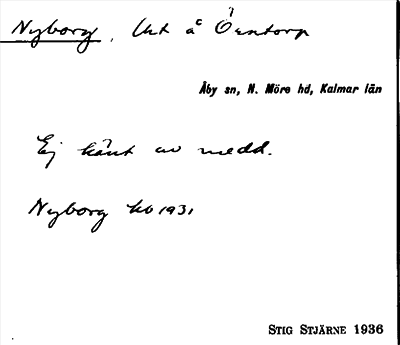 Nyborg, Ut å Örntorp
Åby sn, N. Möre hd, Kalmar län
Ej känt av medd.
Nyborg kb 1931
STIG STJÄRNE 1936